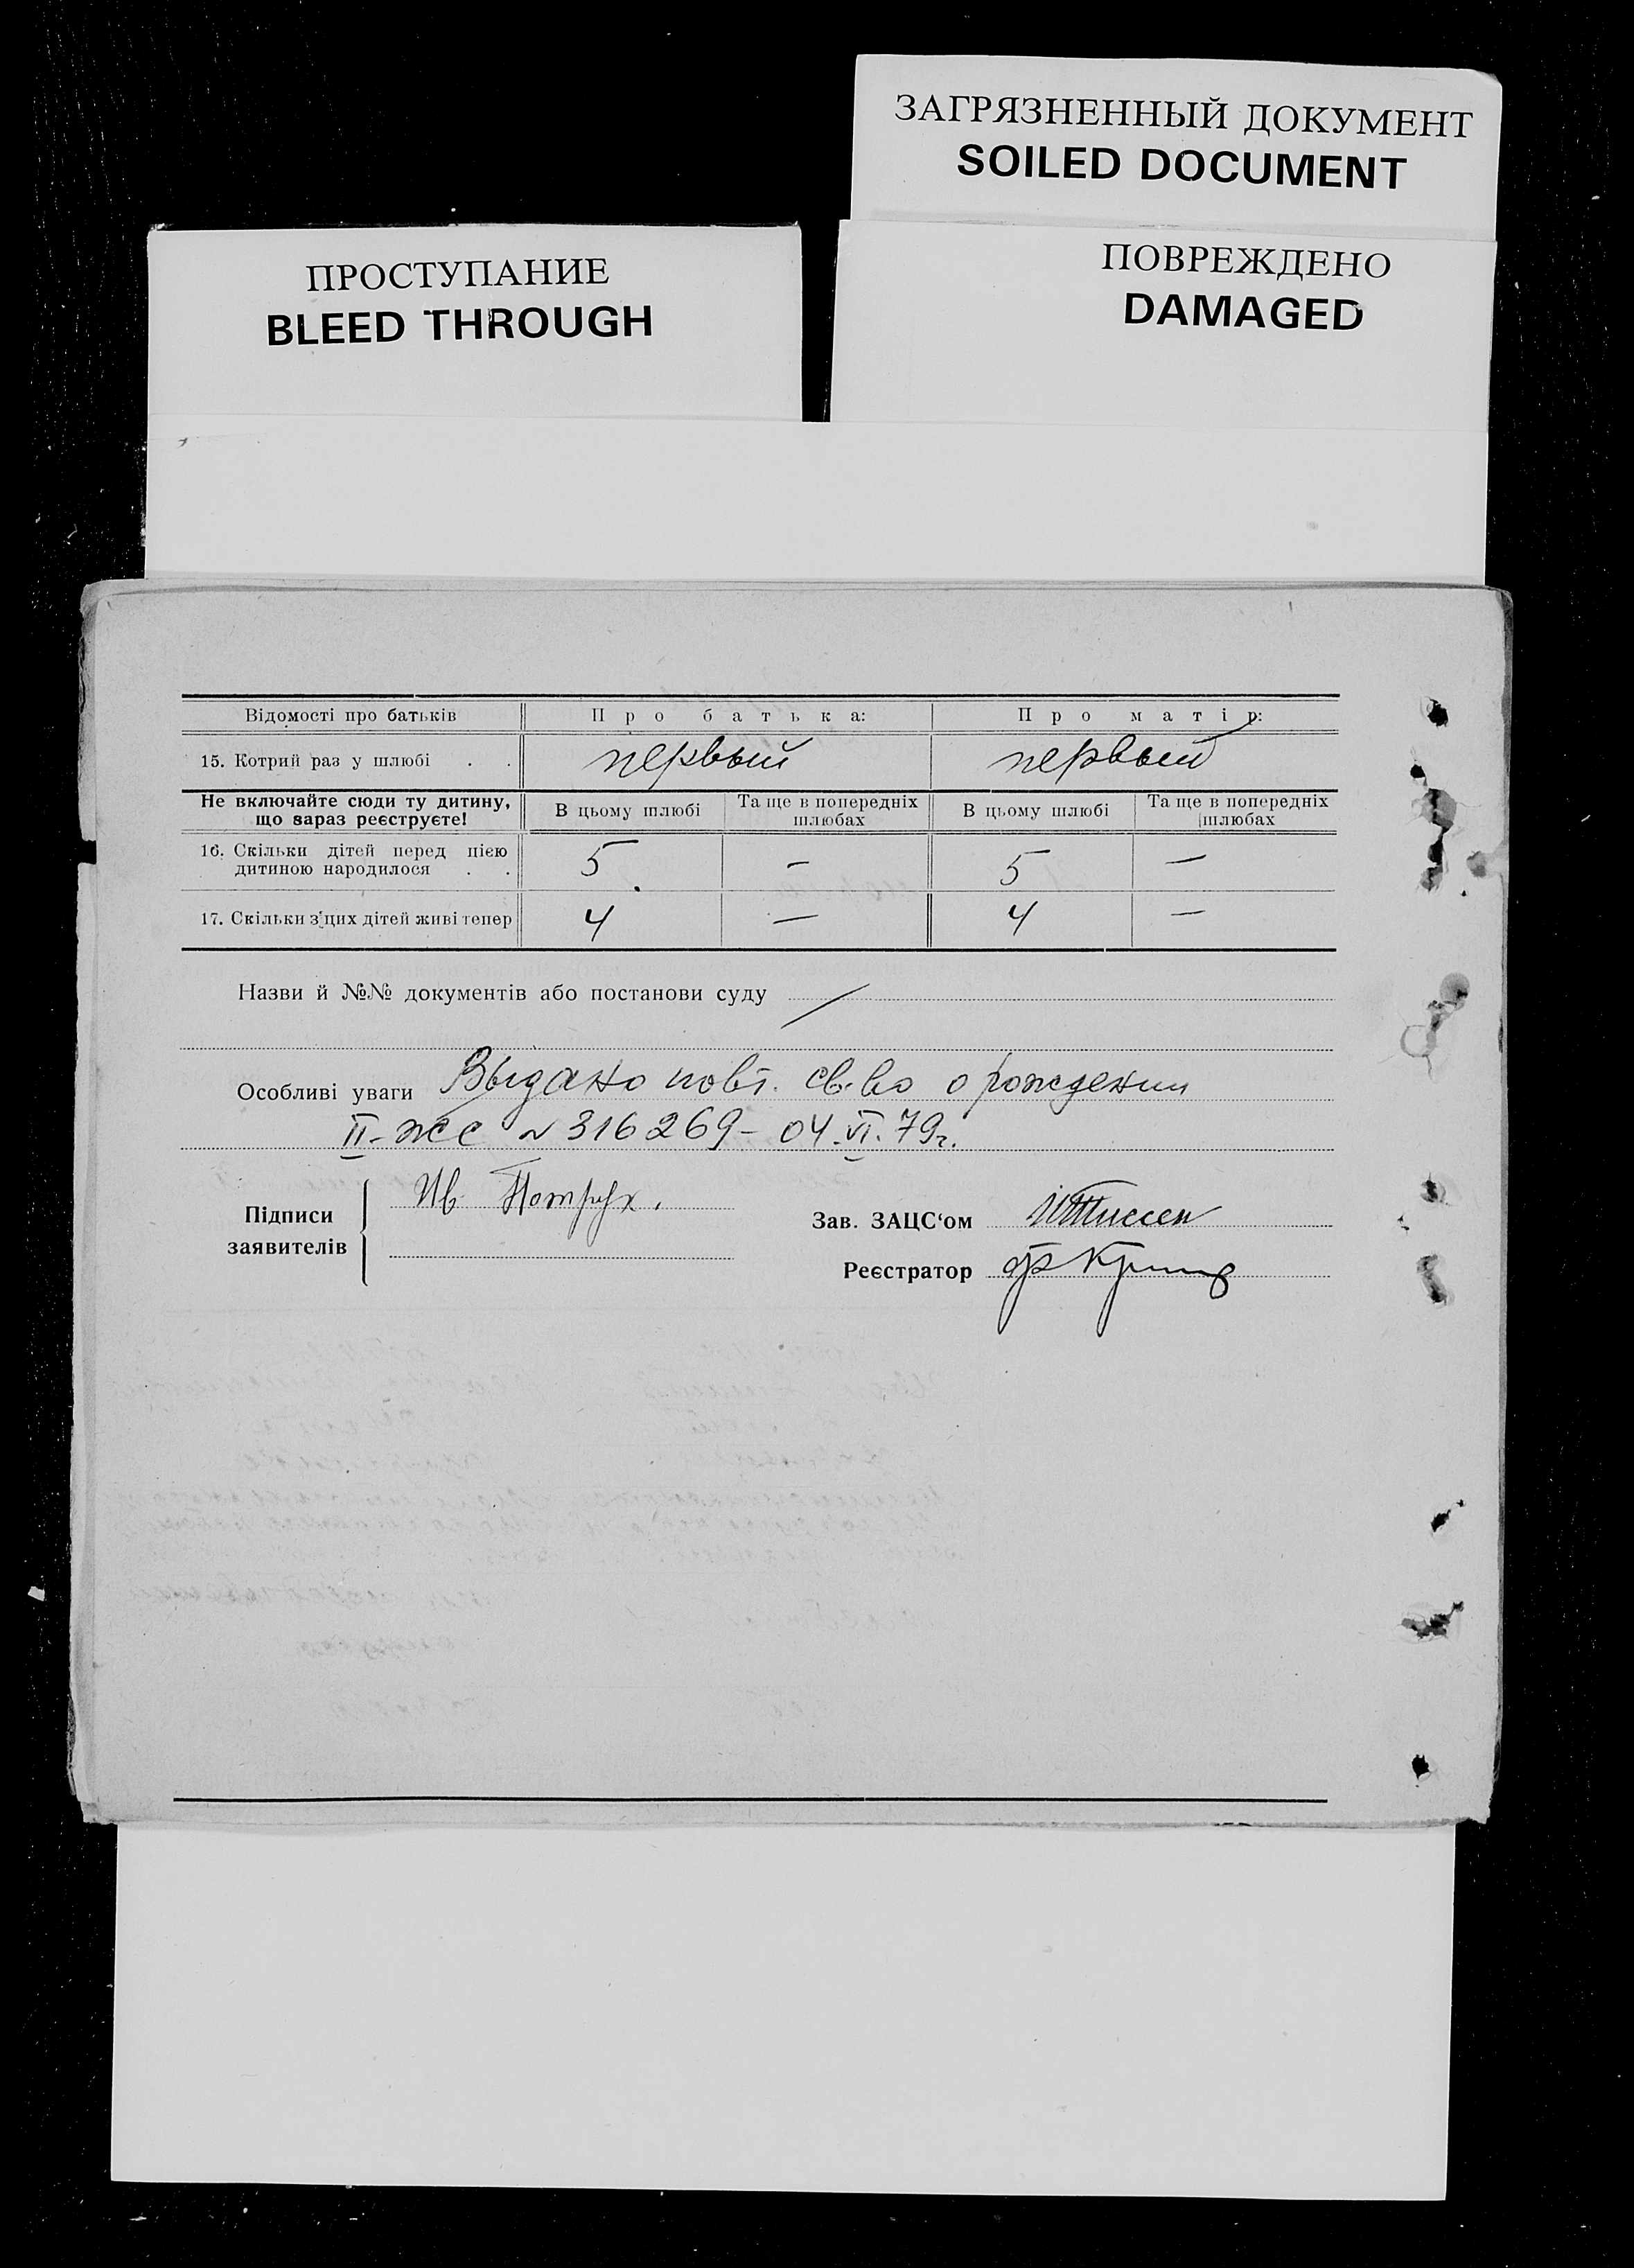 ЗАГРЯЗНЕННЫЙ ДОКУМЕНТ
SOILED DOCUMENT
ПРОСТУПАНИЕ
BLEED THROUGH
ПОВРЕЖДЕНО
DAMAGED
Відомості про батьків Про батька: Про матір:
15. Котрий раз у шлюбі . . первый первый
Не включайте сюди ту дитину, що зараз реєструєте! В цьому шлюбі Та ще в попередніх шлюбах В цьому шлюбі Та ще в попередніх шлюбах
16. Скільки дітей перед цією дитиною народилося . . 5 — 5 —
17. Скільки з цих дітей живі тепер 4 — 4 —
Назви й №№ документів або постанови суду
Особливі уваги Выдано повт. св-во о рождении
II-жс № 316269- 04.VI.79г.
Підписи заявителів Ив
Зав. ЗАЦС‘ом Тиссен
Реєстратор